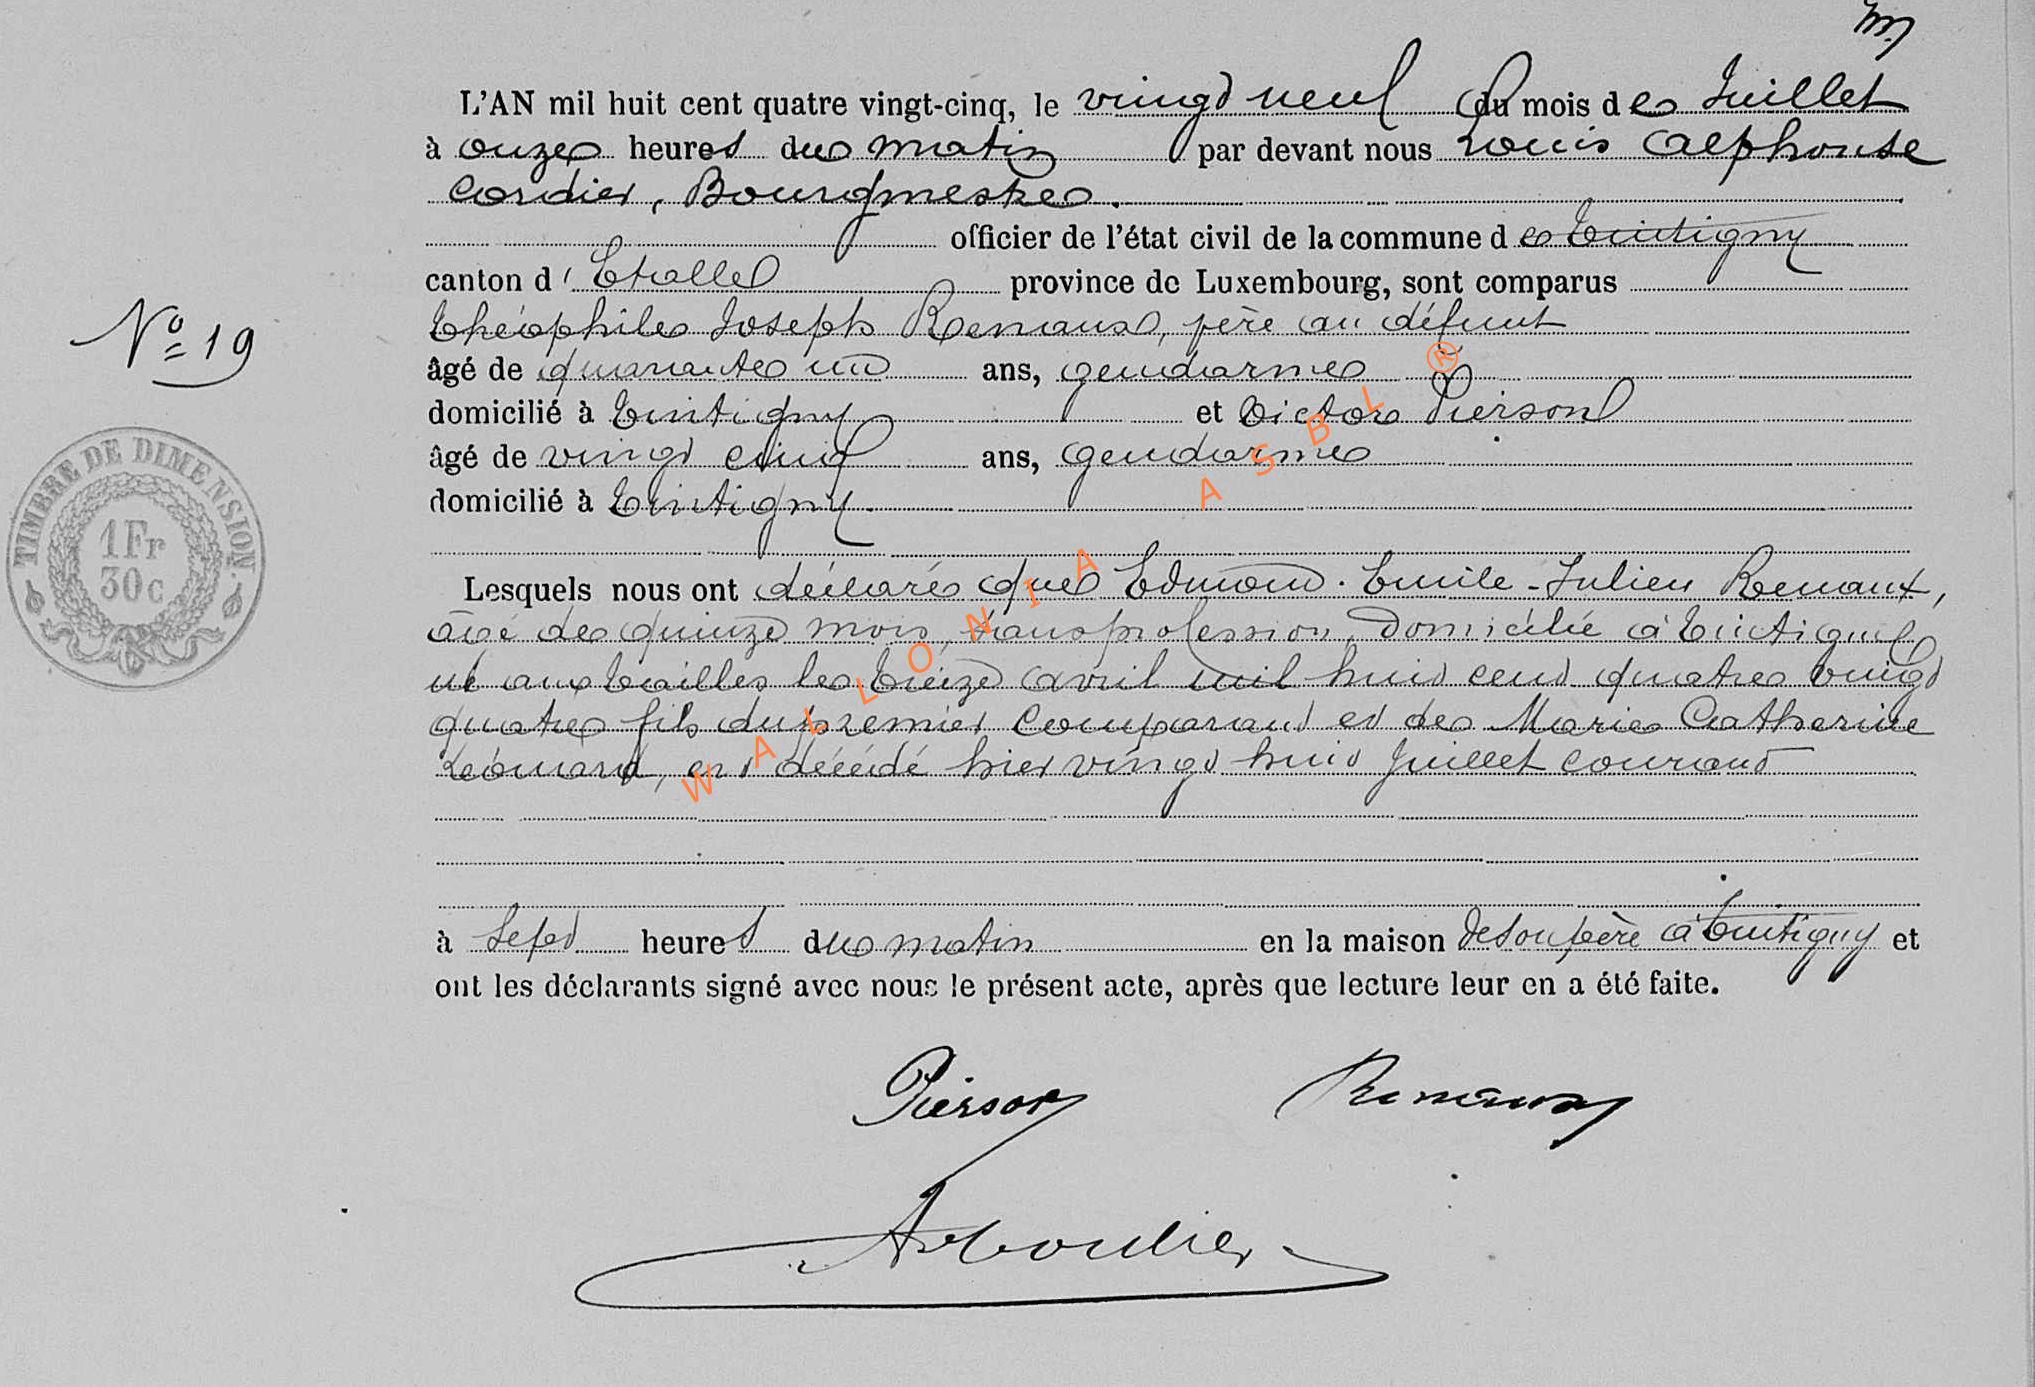 L'AN mil huit cent quatre vingt-cinq, le vingt neuf du mois de Juillet
à onze heures du matin par devant nous Louis Alphonse
Cordier, Bourgmestre.
officier de l'état civil de la commune de Tintigny
canton d'Etalle province de Luxembourg, sont comparus
Théophile Joseph Remaux, père au défunt
âgé de quarante un ans, gendarme
domicilié à Tintigny et Victor Pierson
âgé de vingt cinq ans, gendarme
domicilié à Tintigny.
Lesquels nous ont déclaré que Edmond. Emile-Julien Remaux,
âgé de quinze mois, sans profession, domicilié à Tintigny
né aux Tailles le treize avril mil huit cent quatre vingt
quatre fils du premier comparant et de Marie Catherine
Léonard, est décédé hier vingt huit Juillet courant
à sept heures du matin en la maison de son père à Tintigny et
ont les déclarants signé avec nous le présent acte, après que lecture leur en a été faite.
N° 19
TIMBRE DE DIMENSION.
1 Fr
30 c
Pierson Remaux
WALLONIA ASBL ®